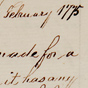 February 1775
made for a
it has any